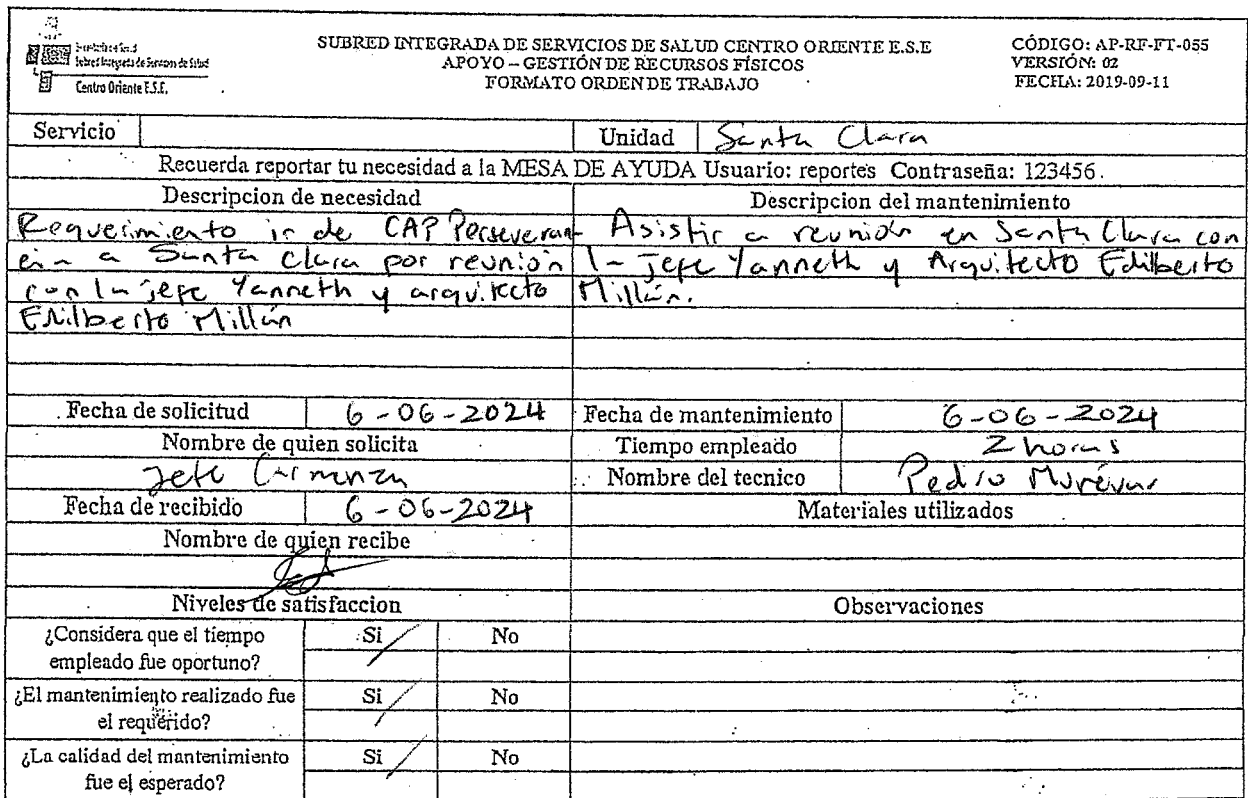 Subred Integrada de Servicios de Salud
Centro Oriente E.S.E.
SUBRED INTEGRADA DE SERVICIOS DE SALUD CENTRO ORIENTE E.S.E
APOYO – GESTIÓN DE RECURSOS FÍSICOS
FORMATO ORDEN DE TRABAJO
CÓDIGO: AP-RF-FT-055
VERSIÓN: 02
FECHA: 2019-09-11
Servicio
Unidad Santa Clara
Recuerda reportar tu necesidad a la MESA DE AYUDA Usuario: reportes Contraseña: 123456.
Descripcion de necesidad
Requerimiento ir de CAP Perseveran-
cia a Santa Clara por reunión
con la jefe Yanneth y arquitecto
Edilberto Millán
Descripcion del mantenimiento
Asistir a reunión en Santa Clara con
la jefe Yanneth y Arquitecto Edilberto
Millán.
Fecha de solicitud 6-06-2024
Fecha de mantenimiento 6-06-2024
Nombre de quien solicita
Jefe Carmenza
Tiempo empleado 2 horas
Nombre del tecnico Pedro
Fecha de recibido 6-06-2024
Materiales utilizados
Nombre de quien recibe
Niveles de satisfaccion
Observaciones
¿Considera que el tiempo
empleado fue oportuno?
Si No
¿El mantenimiento realizado fue
el requerido?
Si No
¿La calidad del mantenimiento
fue el esperado?
Si No